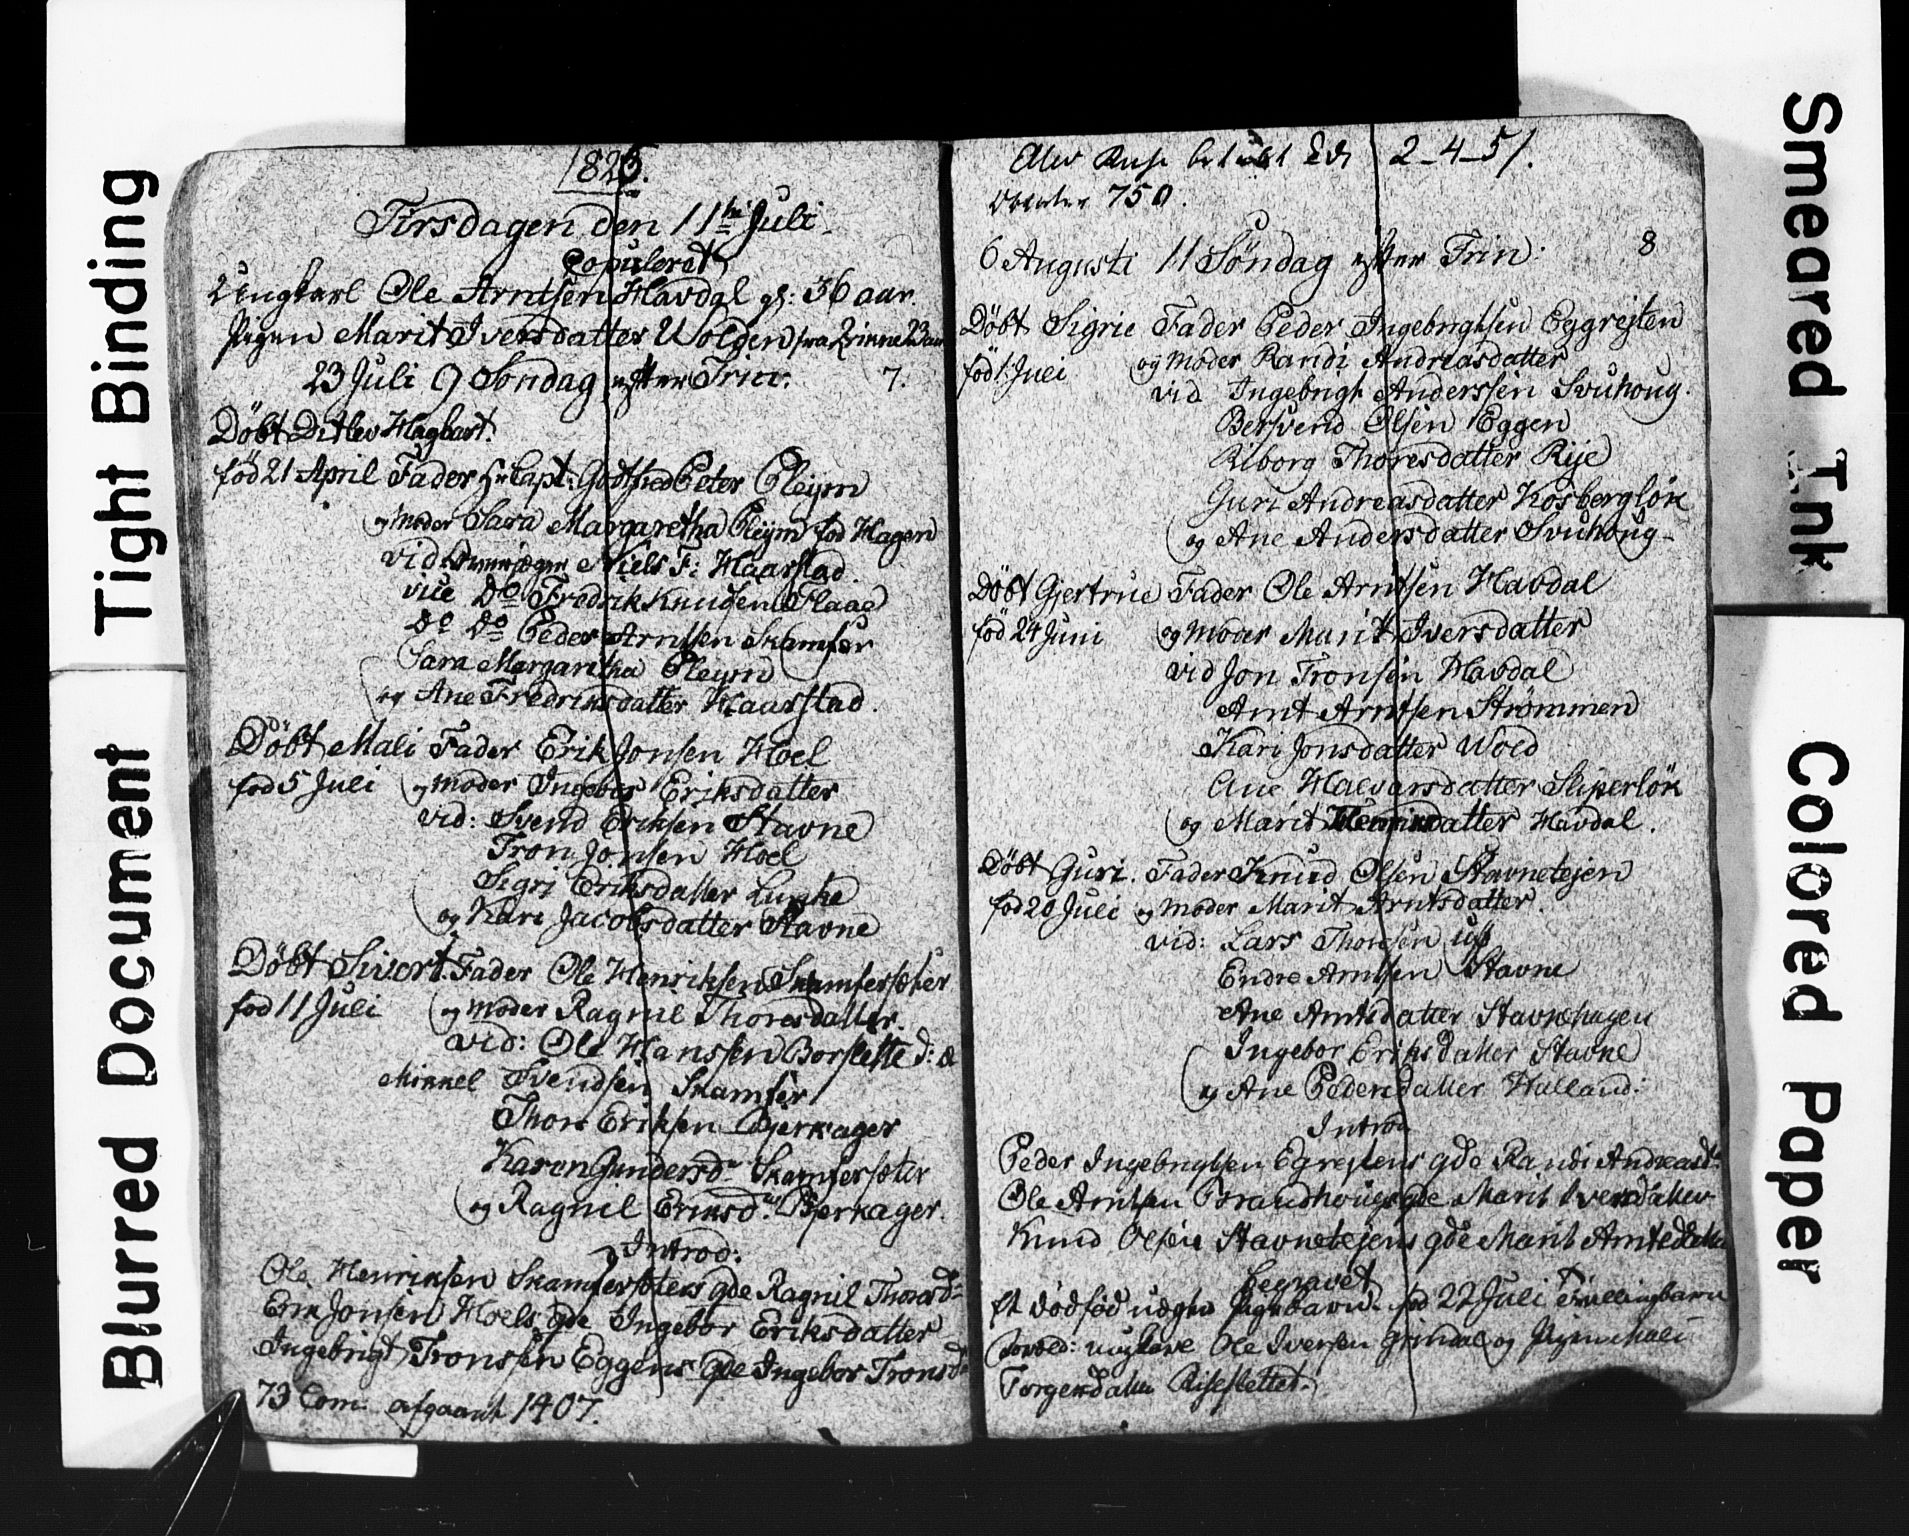 1826.
Tirsdagen den 11te Juli
Copuleret
Ungkarl Ole Arntsen Havdal gl: 36 aar.
Pigen Marit Iversdatter Wolden fra Rinne 23 aar
23 Juli 9 Søndag efter Trin. 7.
Döbt Ditlev Hagbart.
fød 21 April Fader Hr Capt: Godtfred Peter Pleÿm
og Moder Sara Margaretha Pleÿm fød Hagen
vid Niels F: Haarstad
vice Do Fredrik Knudsen Flaae
Do Do Peder Arntsen Skamfær
Sara Margaretha Pleÿm
og Ane Fredriksdatter Haarstad.
Döbt Mali Fader Erik Jonsen Hoel
fød 5 Juli og Moder Ingebor Eriksdatter
vid: Svend Eriksen Stavne
Tron Jonsen Hoel
Sigri Eriksdatter
og Kari Jacobsdatter Stavne
Döbt Sivert Fader Ole Henriksen Skamfersæter
fød 11 Juli og Moder Ragnil Thoresdatter.
vid: Ole Hanssen Borslette d: æ
Mikkel Svendsen Skamfer
Thore Eriksen Bjerkager
Karen Gundersdr Skamfersæter
og Ragnil Eriksdr Bjerkager.
Introd:
Ole Henriksen Skamfersæters gde Ragnil Thoresdr
Erik Jonsen Hoels gde Ingebor Eriksdatter
Ingebrigt Tronsen Eggens gde Ingebor Tronsdr
73 Com: afgaaet 1407.
2-4-51.
750.
6 Augusti 11 Søndag efter Trin. 8
Döbt Sigrie Fader Peder Ingebrigtsen Eggrejten
fød 1 Juli og Moder Randi Andreasdatter
vid Ingebrigt Anderssen Svuhoug.
Bersvend Olsen Eggen
Riborg Thoresdatter Rije
Guri Andreasdatter Kosbergløk
og Ane Andersdatter Svuhoug
Döbt Gjertrue Fader Ole Arntsen Havdal
fød 24 Juni og Moder Marit Iversdatter
vid Jon Tronsen Havdal
Arnt Arntsen Strømmen
Kari Jonsdatter Wold
Ane Halvarsdatter Skiperløk
og Marit Havdal.
Döbt Guri. Fader Knud Olsen Stavnetejen
fød 20 Juli og Moder Marit Arntsdatter.
vid: Lars Thoresen
Endre Arntsen Stavne
Ane Arntsdatter Stavnehagen
Ingebor Eriksdatter Stavne
og Ane Pedersdatter Halland:
Introd
Peder Ingebrigtsen Egrejtens gde Randi Andreasdr
Ole Arntsen Brandhougs gde Marit Iversdatter
Knud Olsen Stavnetejens gde Marit Arntsdatter
Begravet
Et dødfød uægte Pigebarn fød 22 Juli Tvillingbarn
Ole Iversen Grindal og Pigen Mali
Torgersdatter Riseslettet.
Tight Binding
Blurred Document
Smeared Ink
Colored Paper